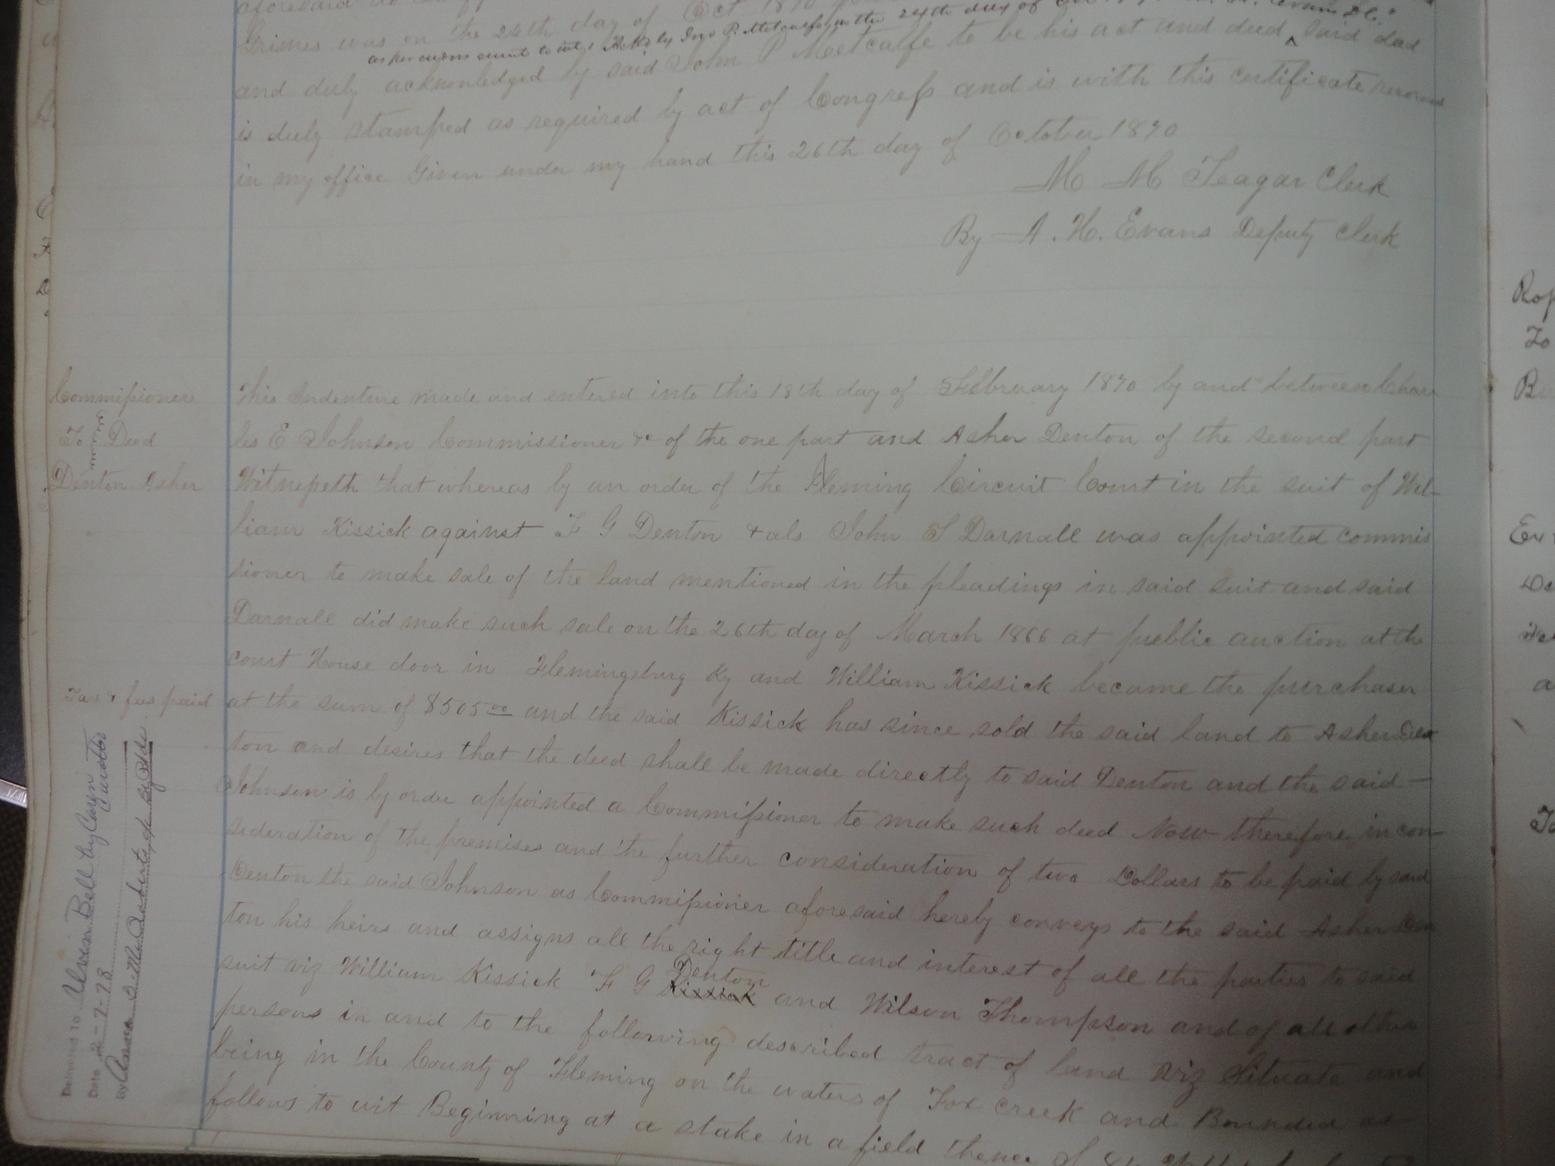 Grimes was on the 24th day of Oct 1870
as per endorsement to wit: Ack'd by Jno P. Metcalfe on the 24th day of Oct
and duly acknowledged by said John P Metcalfe to be his act and deed ^ said deed
is duly stamped as required by act of Congress and is with this certificate record
in my office Given under my hand this 26th day of October 1870
M M Teagar Clerk
By A. H. Evans Deputy Clerk
Commissioners
To Deed
Denton Asher
This Indenture made and entered into this 18th day of February 1870 by and between Char
les E Johnson Commissioner &c of the one part and Asher Denton of the second part
Witnesseth that whereas by an order of the Fleming Circuit Court in the suit of Wil-
liam Kissick against F G Denton & als John S Darnall was appointed commis
sioner to make sale of the land mentioned in the pleadings in said suit and said
Darnall did make such sale on the 26th day of March 1866 at public auction at the
court House door in Flemingsburg Ky and William Kissick became the purchaser
Tax & fees paid
at the sum of $505.00 and the said Kissick has since sold the said land to Asher Den
ton and desires that the deed shall be made directly to said Denton and the said
Johnson is by order appointed a Commissioner to make such deed Now therefore, in con-
sideration of the premises and the further consideration of two Dollars to be paid by said
Denton the said Johnson as Commissioner aforesaid hereby conveys to the said Asher Den
ton his heirs and assigns all the right title and interest of all the parties to said
suit viz William Kissick F G Kissick Denton and Wilson Thompson and of all other
persons in and to the following described tract of land viz Situate and
being in the County of Fleming on the waters of Fox creek and Bounded as
follows to wit Beginning at a stake in a field thence
Delivered to Bell by
Date 2-7-78
By